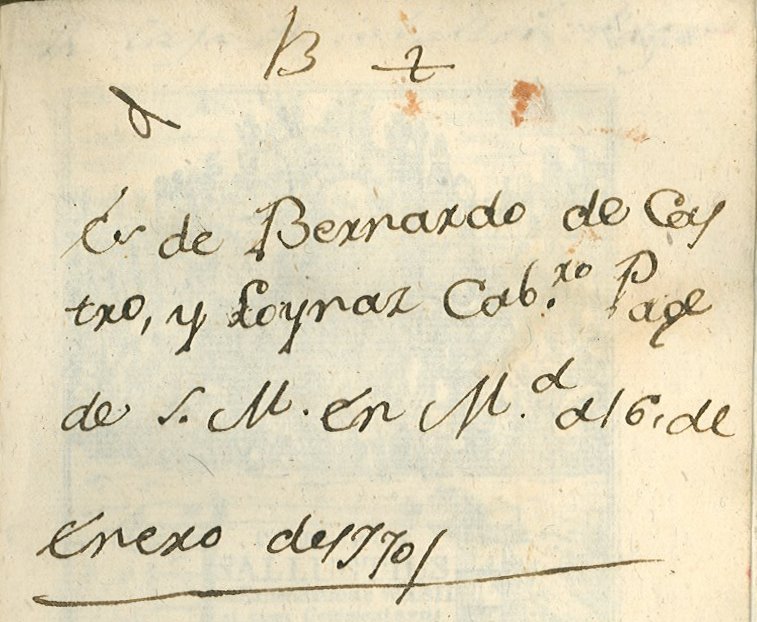 B 2
Es de Bernardo de Cas
tro, y Loynaz Cab.ro Page
de S. M. en M.d a 16, de
Enero de 1770